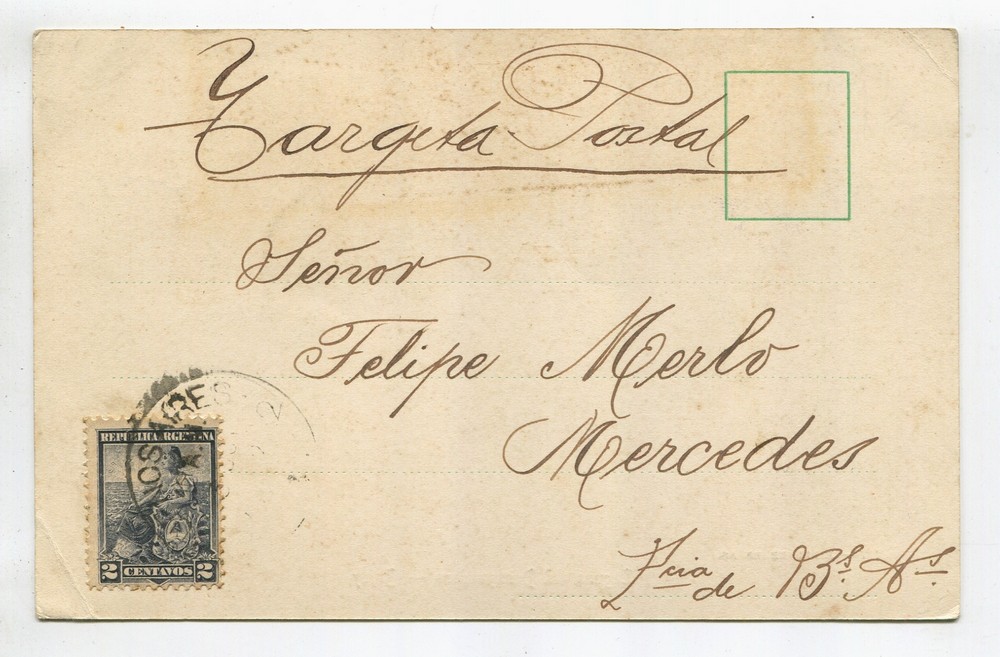 Targeta Postal
Señor
Felipe Merlo
Mercedes
Pcia de Bs. As.
OS AIRES
2
REPUBLICA ARGENTINA
2 CENTAVOS 2